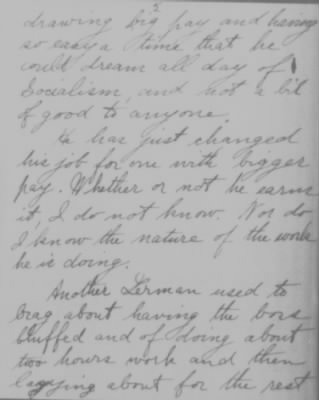 2
drawing big pay and having
so easy a time that he
could dream all day of
Socialism, and not a bit
of good to anyone.
He has just changed
his job for one with bigger
pay. Whether or not he earns
it, I do not know. Nor do
I know the nature of the work
he is doing.
Another Lerman used to
brag about having the boss
bluffed and of doing about
two hours work and then
laying about for the rest